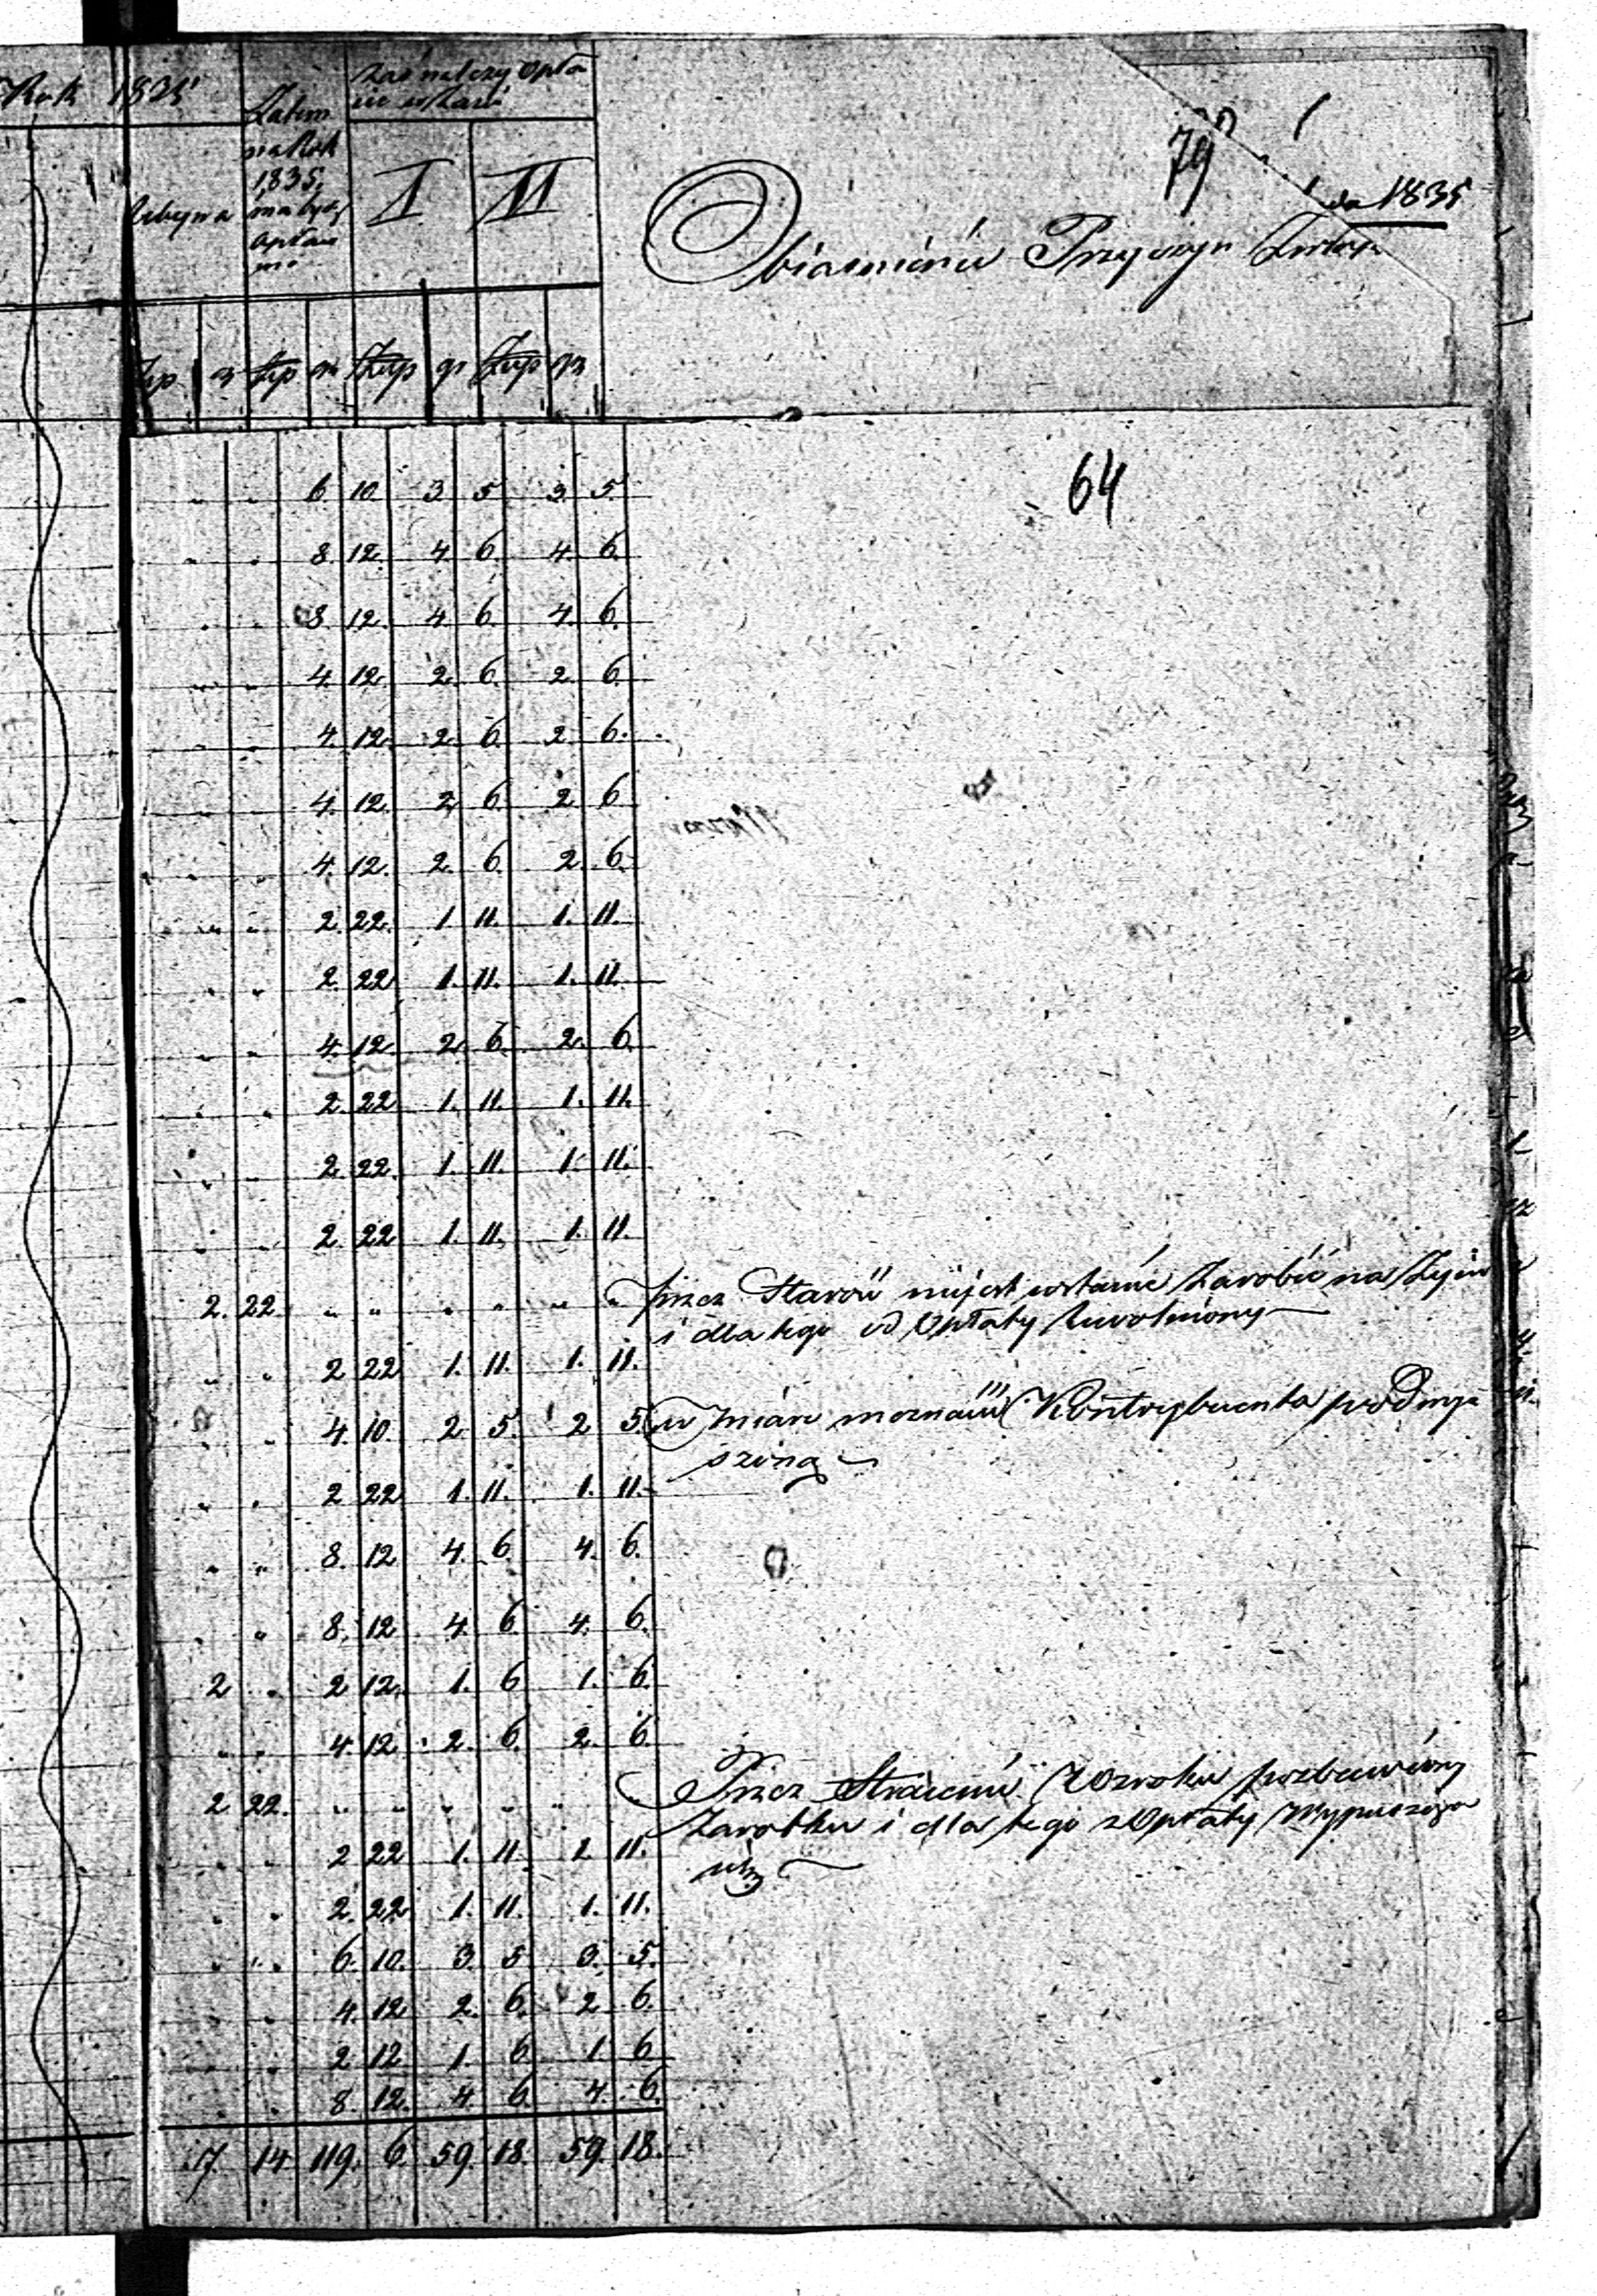 Rok 1835
Ubywa
Zatem
na Rok
1835
ma być
opłaco
no
zaś należy opła
I II
79
1835
Obiasnienie Przyczyn
Złp gr Złp gr Złp gr Złp gr
64
" " 6. 10. 3 5 3. 5.
" " 8. 12. 4 6 4. 6.
" " 8. 12. 4 6. 4. 6.
" " 4. 12. 2. 6. 2. 6.
" " 4. 12. 2. 6. 2. 6.
" " 4. 12. 2. 6. 2 6
" " 4. 12. 2. 6. 2. 6.
" " 2. 22. 1. 11. 1. 11.
" " 2. 22. 1. 11. 1. 11.
" " 4. 12. 2. 6. 2. 6.
" " 2. 22 1. 11. 1. 11.
" " 2. 22. 1. 11. 1. 11.
" " 2. 22 1. 11. 1. 11.
2. 22. " " " " " " przez Starość niejest wstanie Zarobić na Życie
i dla tego od Opłaty Uwolniony
" " 2 22 1. 11. 1. 11.
" " 4. 10. 2 5. 2 5. w miarę możności Kontrybuenta podwyż
szono
" " 2 22 1. 11. 1. 11.
" " 8. 12 4. 6. 4. 6.
" " 8. 12 4. 6 4. 6.
2 " 2 12. 1. 6 1. 6.
" " 4. 12 2. 6. 2. 6.
2 22. " " " " " " Przez Stracenie Wzroku pozbawiony
Zarobku i dla tego z Opłaty wypuszczo
ny
" " 2 22 1. 11. 1. 11.
" " 2. 22 1. 11. 1. 11.
" " 6. 10. 3. 5 3. 5.
" " 4. 12 2. 6. 2 6.
" " 2 12 1. 6 1. 6
" " 8. 12. 4. 6. 4. 6.
7. 14 119. 6. 59. 18. 59. 18.